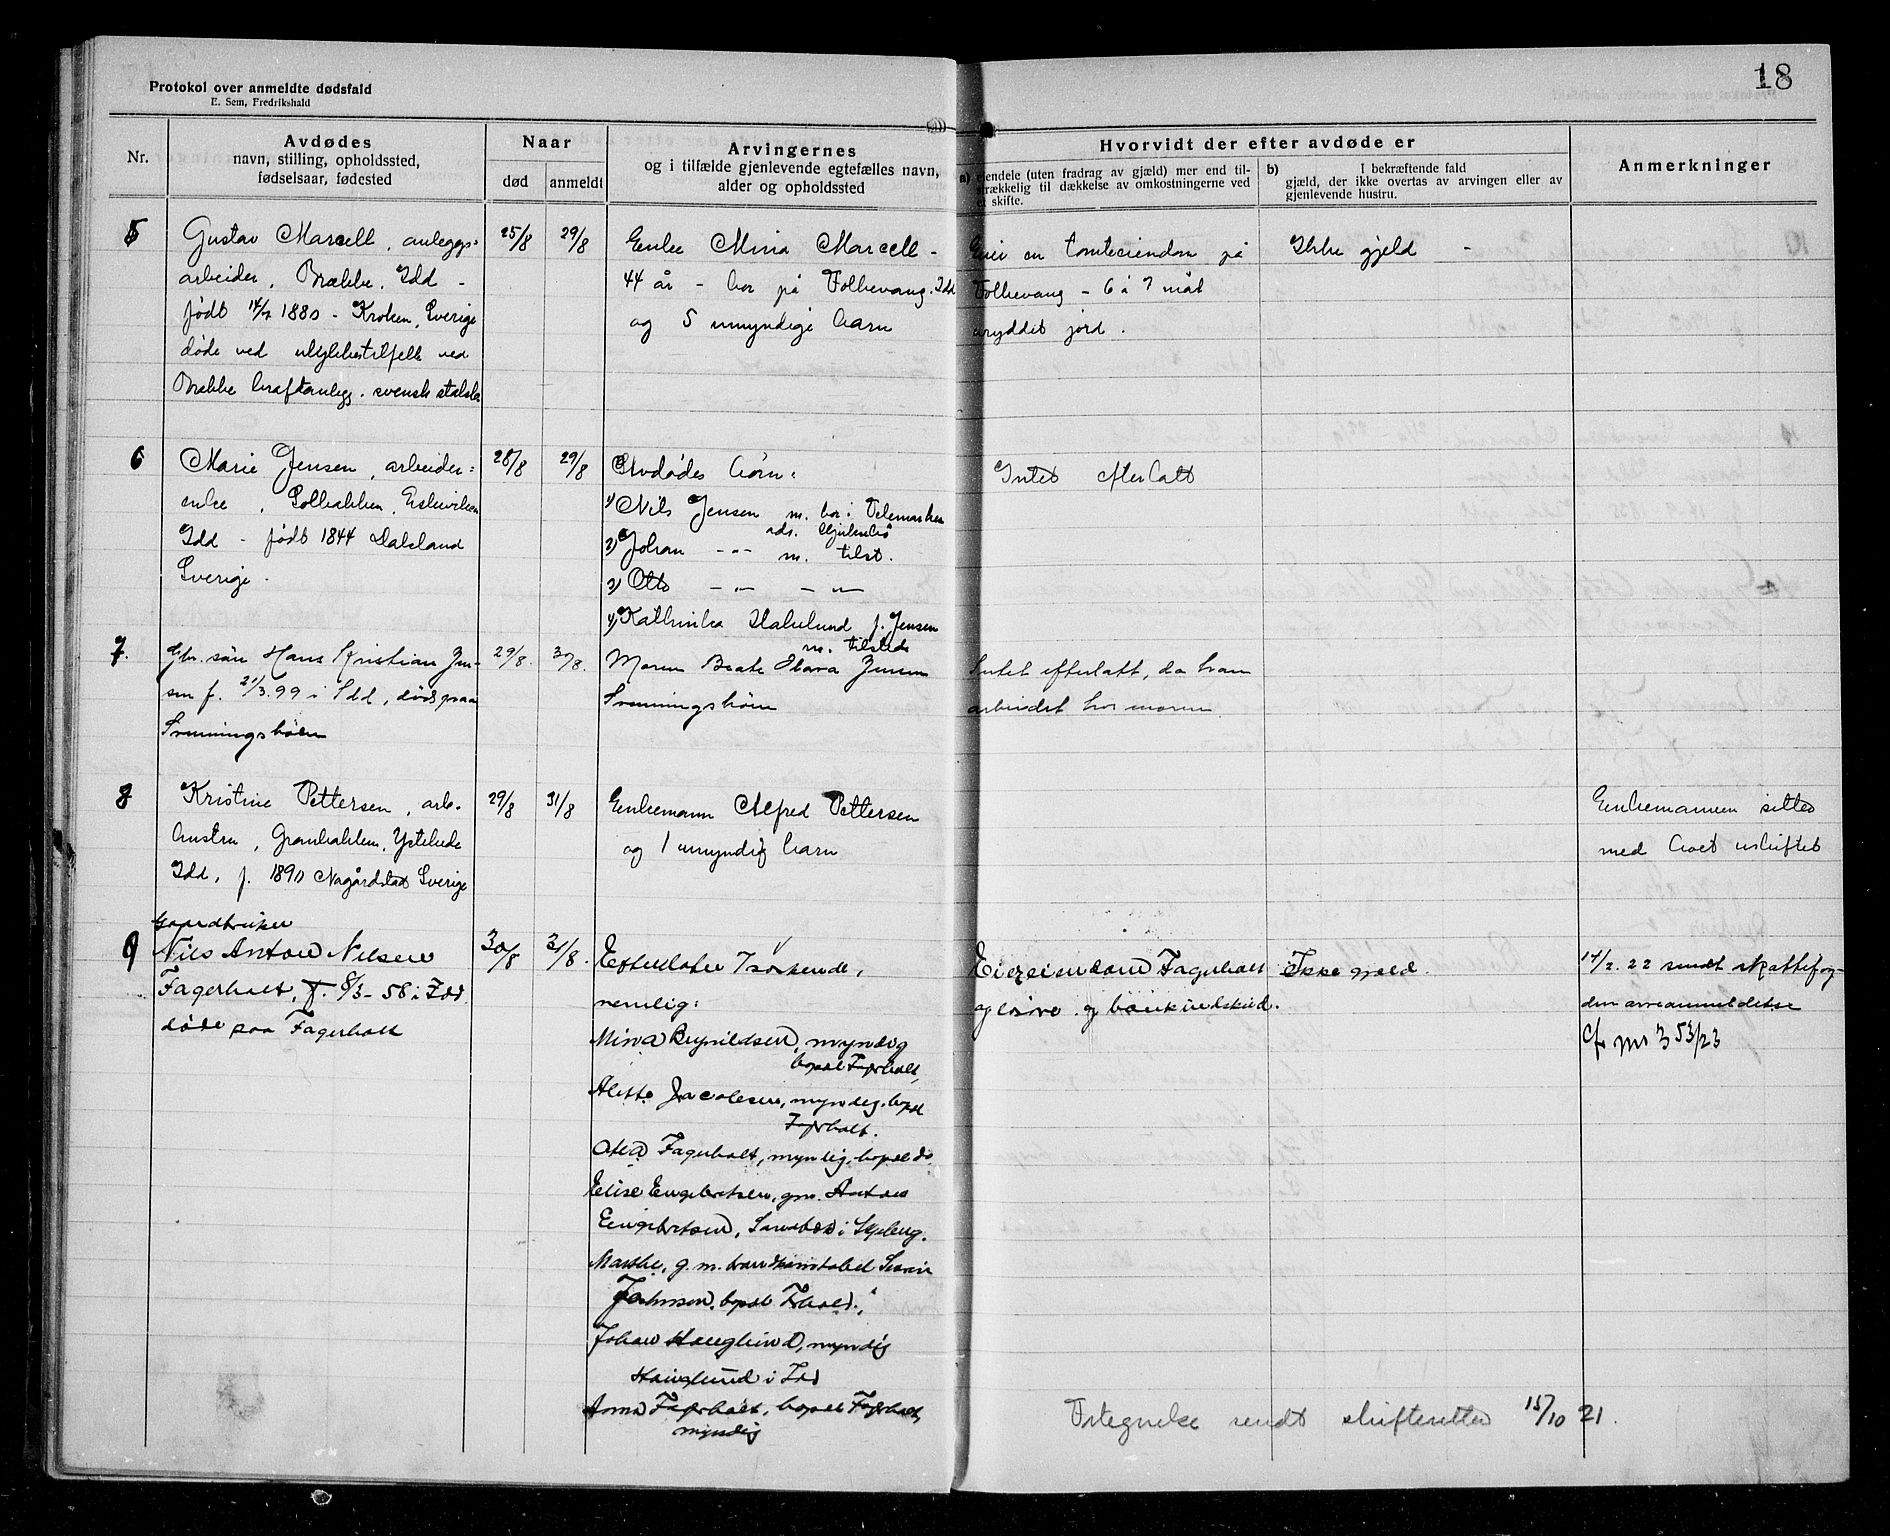 18
Protokol over anmeldte dødsfald
E. Sem, Fredrikshald
Nr.
Avdødes
navn, stilling, opholdssted,
fødselsaar, fødested
Naar
død
anmeldt
Arvingernes
og i tilfælde gjenlevende egtefælles navn,
alder og opholdssted
Hvorvidt der efter avdøde er
a) eiendele (uten fradrag av gjæld) mer end til-
strækkelig til dækkelse av omkostningerne ved
et skifte.
b) I bekræftende fald
gjæld, der ikke overtas av arvingen eller av
gjenlevende hustru.
Anmerkninger
5
Gustav Marcell, anleggs-
arbeider, Brække, Idd -
født 14/7 1880 - Kroken, Sverige
døde ved ulykkestilfelle ved
Brække kraftanlegg. svensk
25/8
29/8
Enke Mina Marcell -
44 år - bor på Folkevang, Idd
og 5 umyndige barn
Eier en tomteeiendom på
Folkevang - 6 à 7 mål
uryddit jord.
Ikke gjeld -
6
Marie Jensen, arbeider-
enke, Solbakken, Eskeviken
Idd - født 1844 Dalsland
Sverige.
28/8
29/8
Avdødes børn:
1) Nils Jensen m. bor i Telemarken
ads.
2) Johan -"- m. tilst.
3) Otto -"- -"-
4) Kathinka Hakelund f. Jensen
m. tilstede
Intet efterlatt
7.
søn Hans Kristian Jen-
sen f. 21/3.99 i Idd, død paa
29/8.
30/8.
Moren Beate Jensen
Intet efterlatt, da han
arbeidet hos moren.
8
Kristine Pettersen, arb.
hustru, Granbakken, Ystehede
Idd, f. 1890 Nagårdstad Sverige
29/8
31/8
Enkemann Alfred Pettersen
og 1 umyndig barn
Enkemannen sitter
med boet uskiftet
9
Gaardbruker
Nils Anton Nilsen
Fagerholt, f. 8/3-58 i Idd
døde paa Fagerholt
30/8
31/8.
Efterlater 7 søskende,
nemlig:
Mina Brynildsen, myndig
bopæl Fagerholt,
Alette Jacobsen, myndig, bopæl
Fagerholt.
Fagerholt, myndig, bopæl do.
Elise Engebretsen, gm. Anton
Engebretsen, i
Marthe, g.m. brandkonstabel
Johnsen, bopæl Fhald.,
Johan Hauglund, myndig
Hauglund i Idd
Anna Fagerholt, bopæl Fagerholt,
myndig
Eier eiendom Fagerholt
og løsøre og bankindskud.
Ikke gjæld.
14/2. 22 sendt skattefog-
den arveanmeldelse
Cfr nr 353/23
Utregnelse sendt skifteretten 15/10 21.